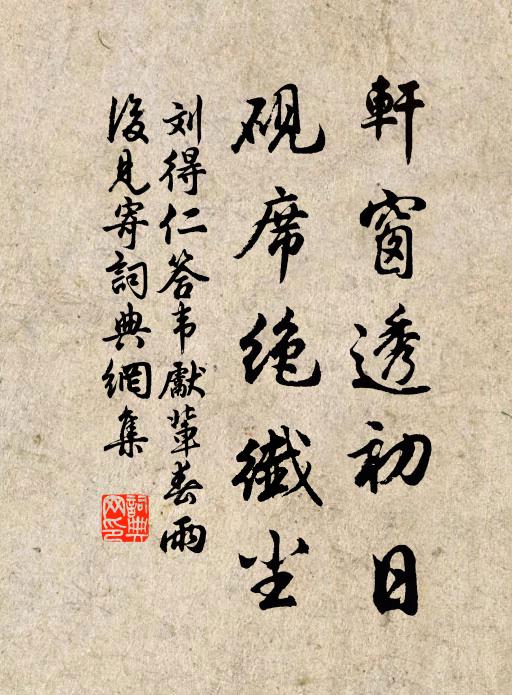 軒窗透初日
硯席絶纖尘
刘得仁答韦獻輩春雨
後見寄詞典網集
詞典
网印